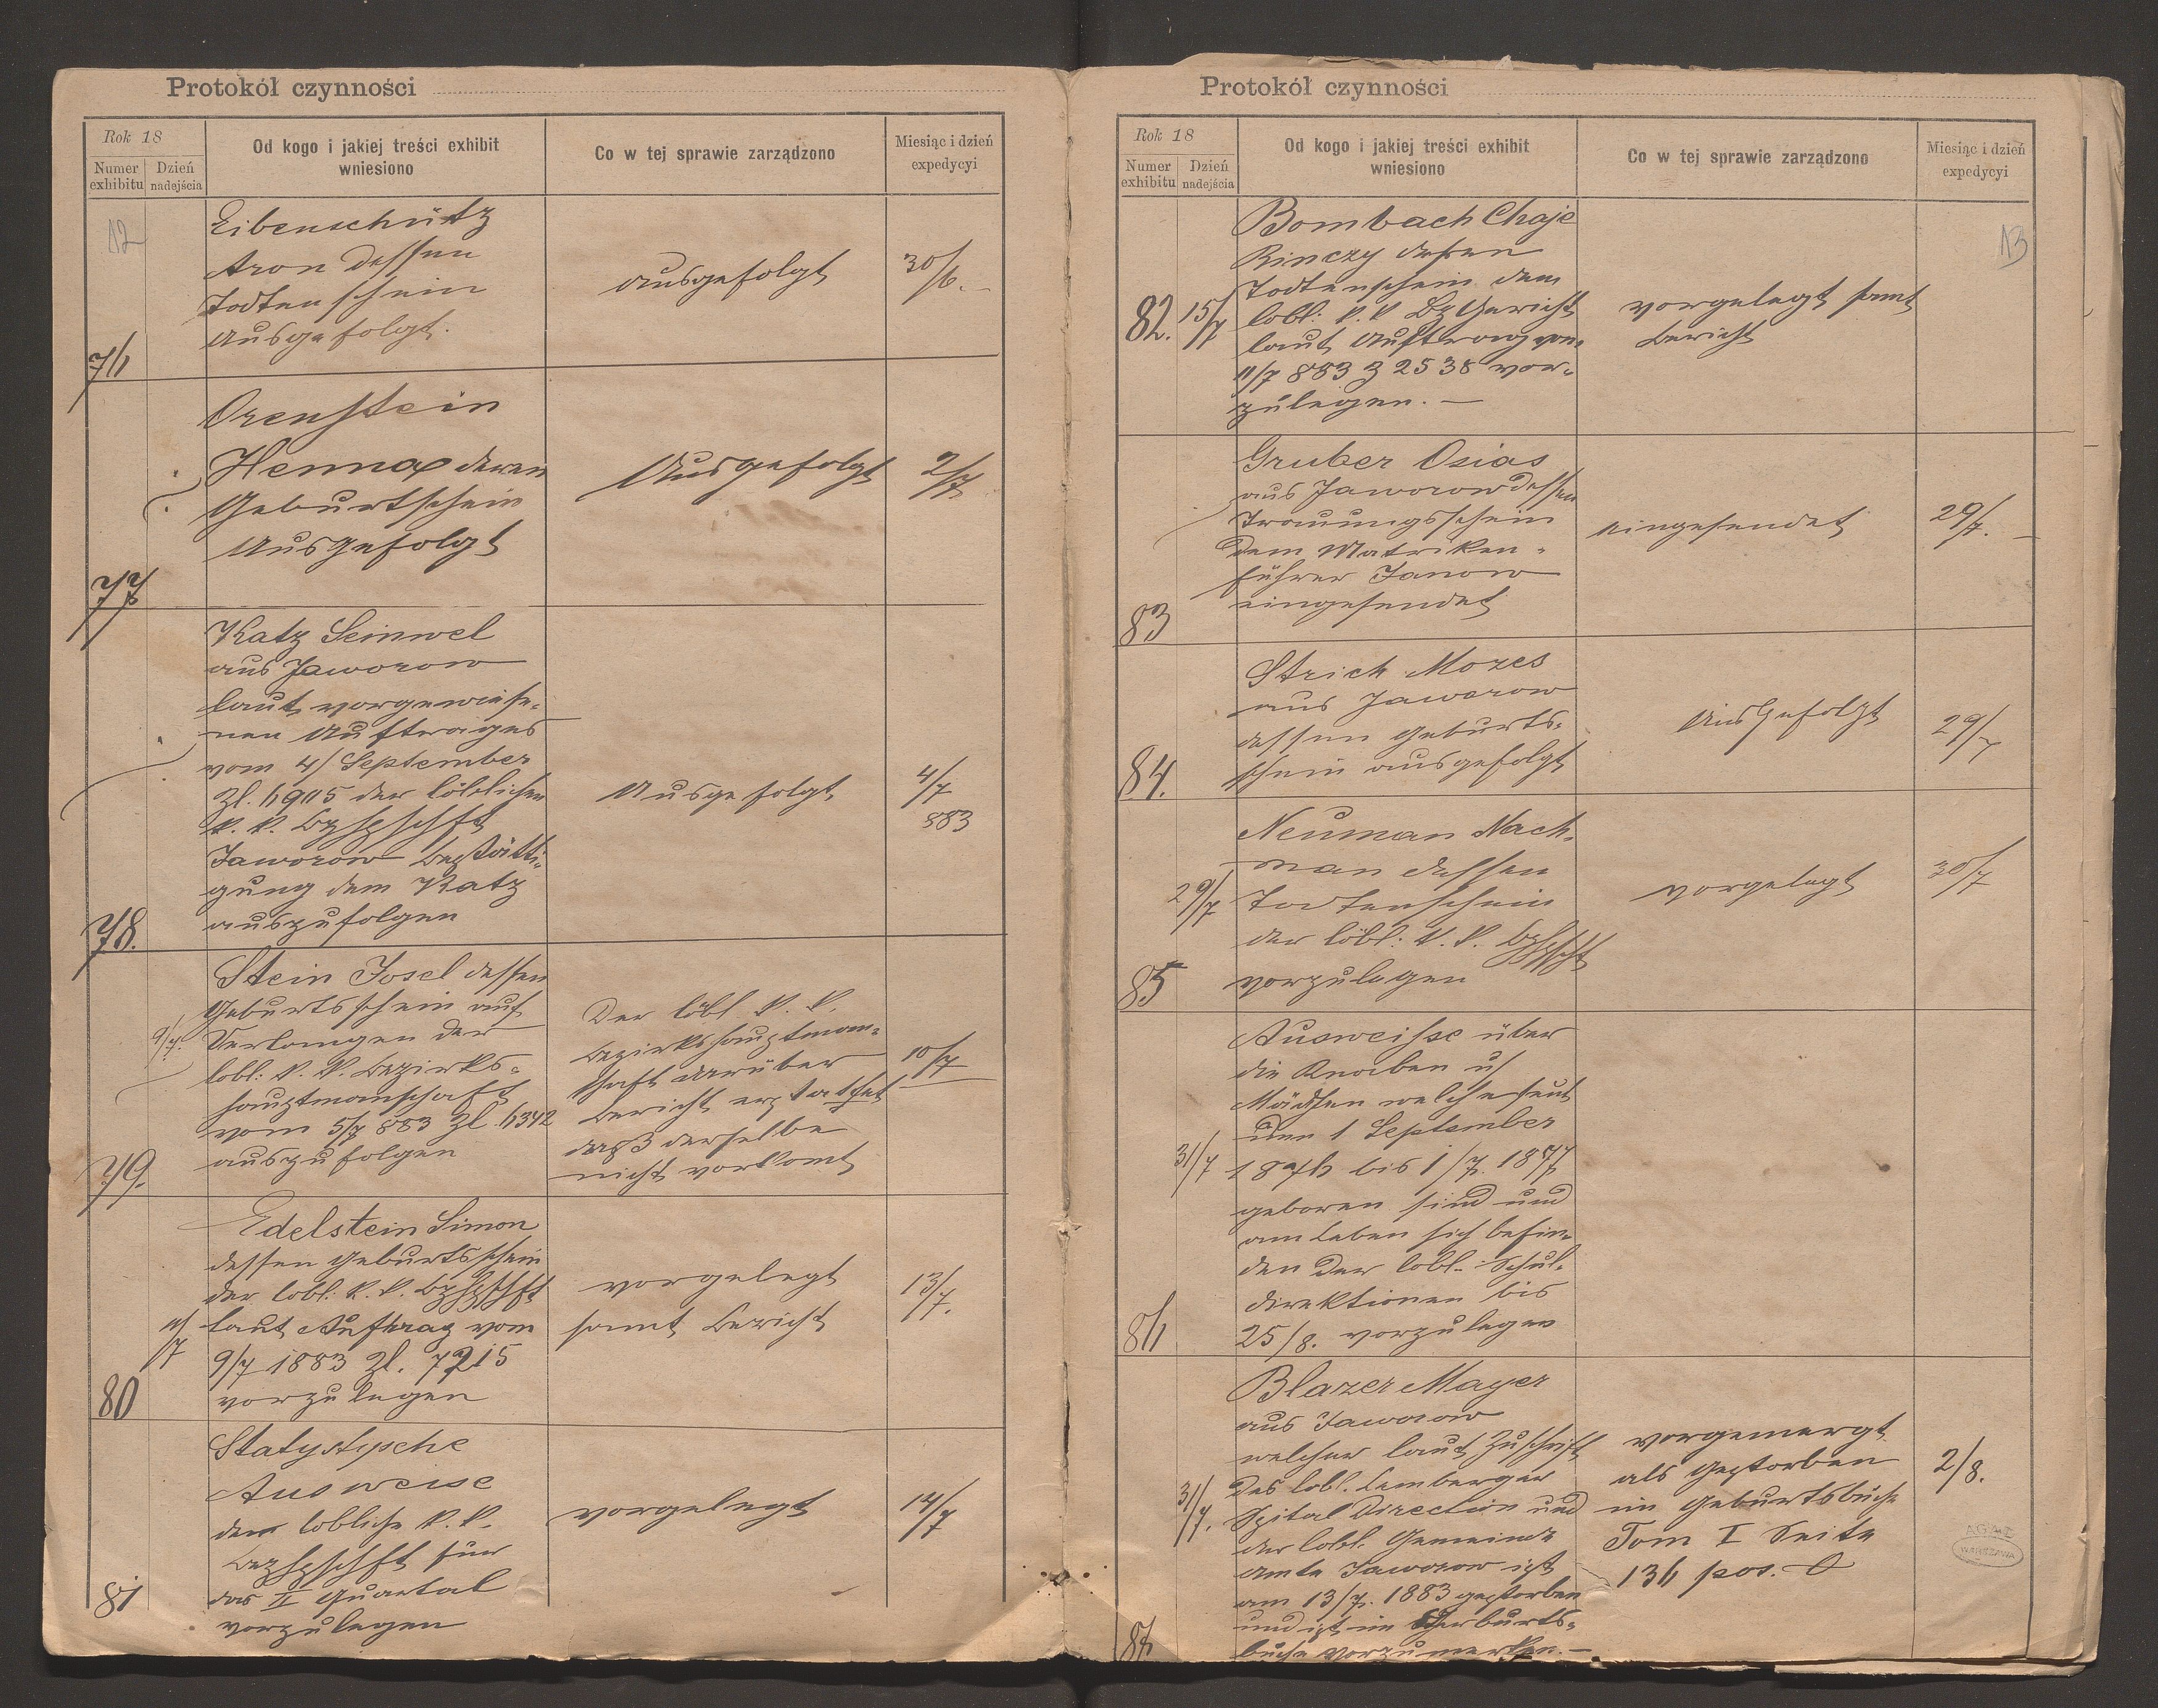 Protokół czynności
Rok 18
Numer exhibitu
Dzień nadejścia
Od kogo i jakiej treści exhibit wniesiono
Co w tej sprawie zarządzono
Miesiąc i dzień expedycyi
12
Eibenschütz
Aron dessen
Todtenschein
ausgefolgt.
ausgefolgt
30/6.
76
Orenstein
Henna deren
Geburtschein
Ausgefolgt
Ausgefolgt
2/7
77
Katz Seinwel
aus Jaworow
laut vorgewiese-
nen Auftrages
vom 4/ September
Zl. 6905 der löblichen
k. k. Bzhptschft
Jaworow Bestätti-
gung dem Katz
auszufolgen
Ausgefolgt
4/7
883
78.
Stein Josel dessen
Geburtsschein auf
Verlangen der
lobl: k. k. Bezirks-
hauptmanschaft
vom 5/7 883 Zl. 6342
auszufolgen
9/7.
Der löbl k. k.
Bezirkshauptman-
schaft darüber
Bericht erstattet
daß derselbe
nicht vorkomt
10/7
79.
Edelstein Simon
dessen Geburtsschein
der lobl: k. k. Bzhptschft
laut Auftrag vom
9/7 1883 Zl. 7215
vorzulegen
11/7
vorgelegt
samt Bericht
13/7.
80
Statystysche
Ausweise
der lobliche k. k.
Bezhptschft für
das II Quartal
vorzulegen
vorgelegt
14/7
81
Protokół czynności
Rok 18
Numer exhibitu
Dzień nadejścia
Od kogo i jakiej treści exhibit wniesiono
Co w tej sprawie zarządzono
Miesiąc i dzień expedycyi
13
Bombach Chaje
Rinczy deßen
Todtenschein dem
lobl: k. k Bz Gericht
laut Auftrag von
11/7 883 Z 2538 vor-
zulegen. —
82. 15/7
vorgelegt samt
Bericht
Gruber Osias
aus Jaworow dessen
Trauungsschein
dem Matriken-
führer Janow
eingesendet
eingesendet
29/7.
83
Strich Mozes
aus Jaworow
dessen Geburts-
schein ausgefolgt
Ausgefolgt
29/7
84.
Neuman Nach-
man dessen
Todtenschein
der löbl: k. k. Bzhptschft
vorzulegen
29/7
vorgelegt
30/7
85
Ausweisse über
die Knaben u/
Mädchen welche seit
den 1 September
1876 bis 1/7. 1877
geboren sind und
am Leben sich befin-
den der lobl. Schul-
direktionen bis
25/8. vorzulegen
31/7
86
Blazer Mayer
aus Jaworow
welcher laut Zuschrift
des lobl. Lemberger
Spital Direction und
der lobl. Gemeinde
Amte Jaworow ist
am 13/7. 1883 gestorben
und ist im Geburts-
buche vorzumerken. —
31/7.
vorgemergt
als gestorben
im Geburtsbuche
Tom I Seite
136 pos. 0
2/8.
87
AGAD
WARSZAWA